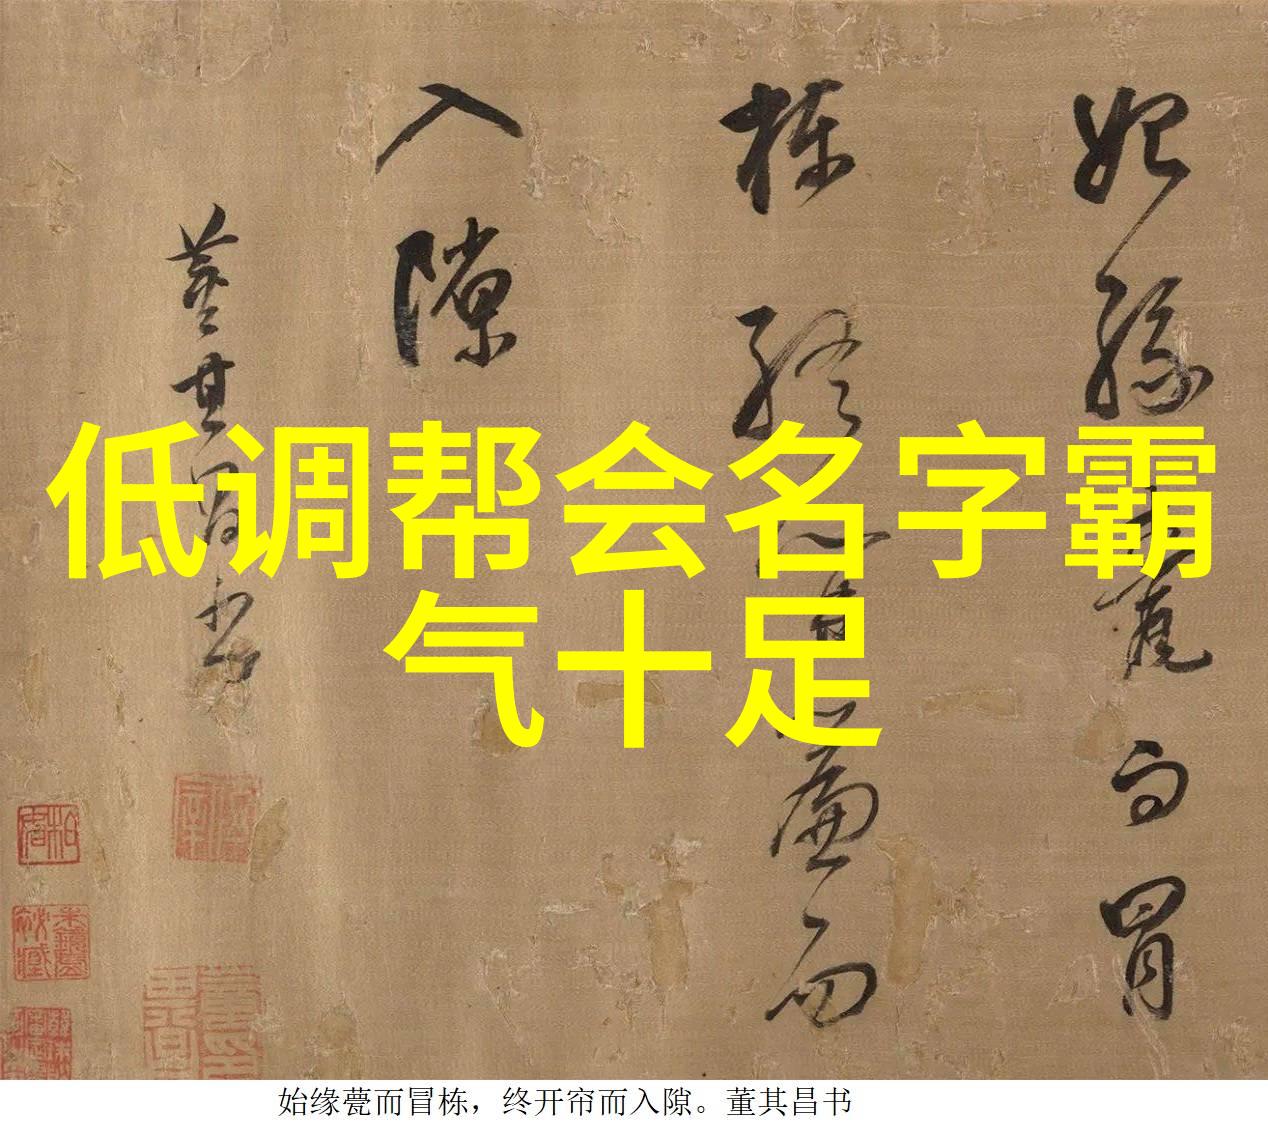 低调帮会名字霸
气十足
始缘
甍而冒
栋终
帘而
入隙
董其昌书
始缘甍而冒栋，终开帘而入隙。董其昌书